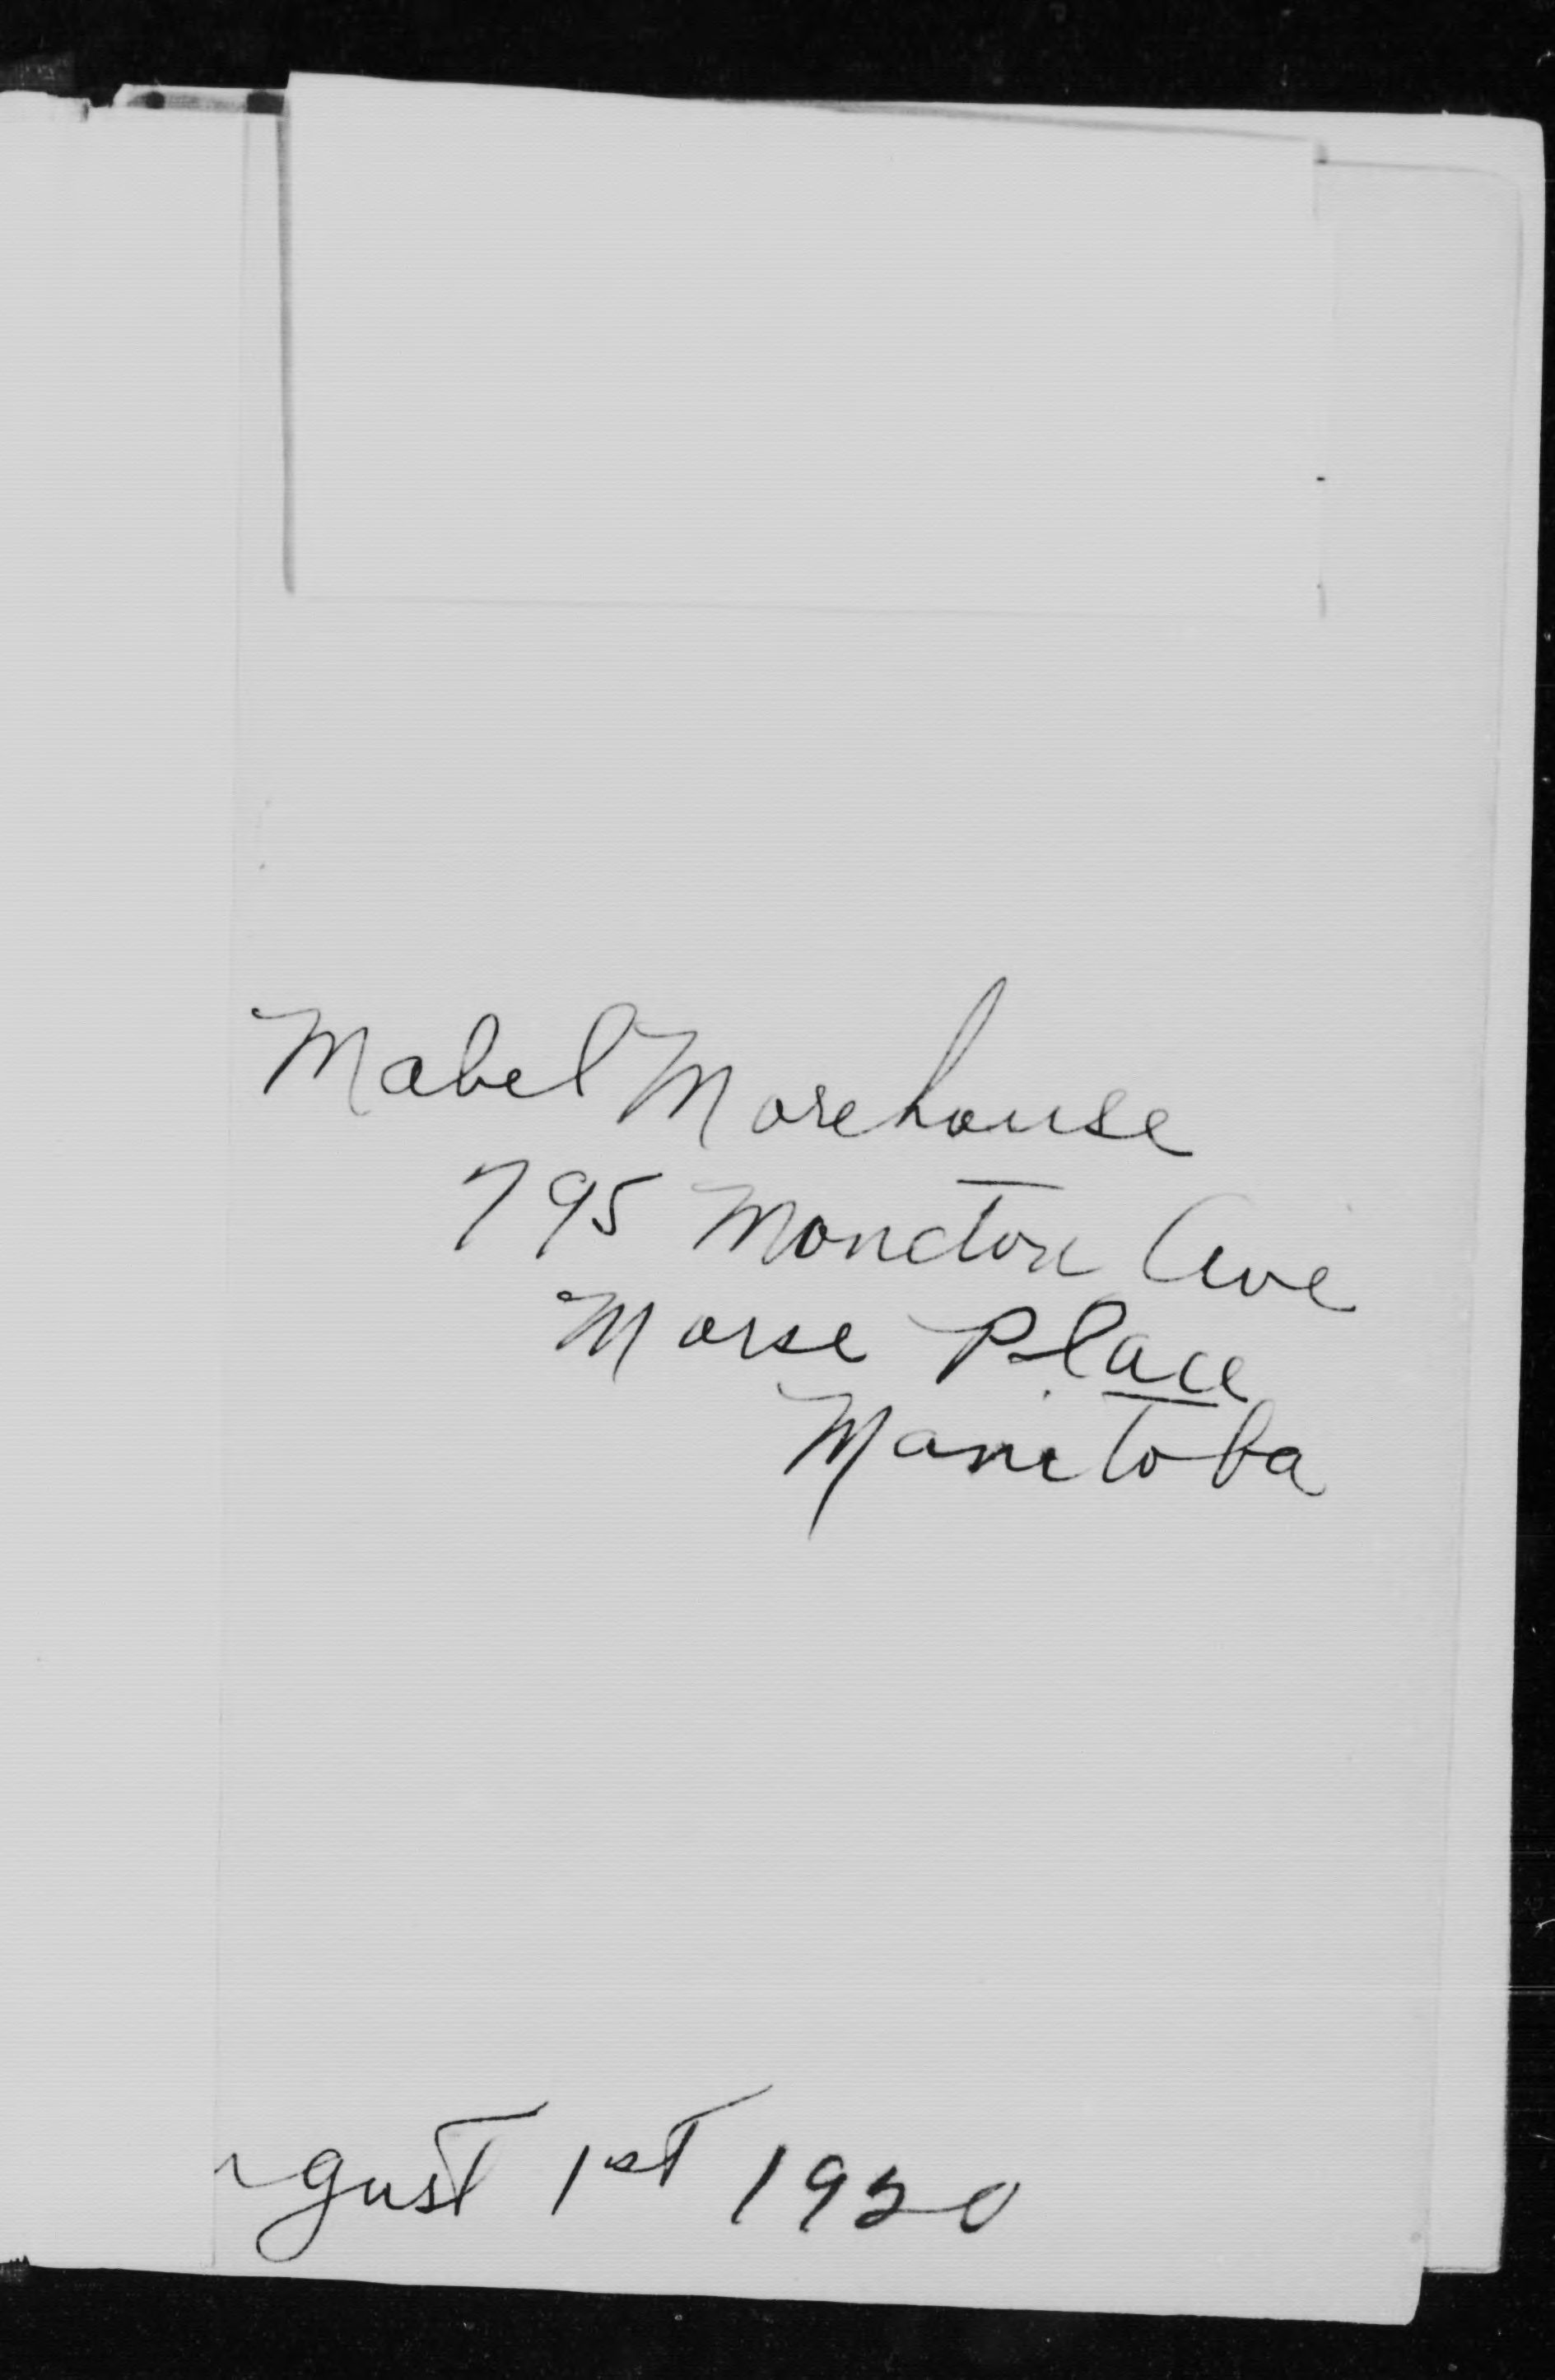 Mabel Morehouse
795 Moncton Ave
Morse Place
Manitoba
ugust 1st 1920